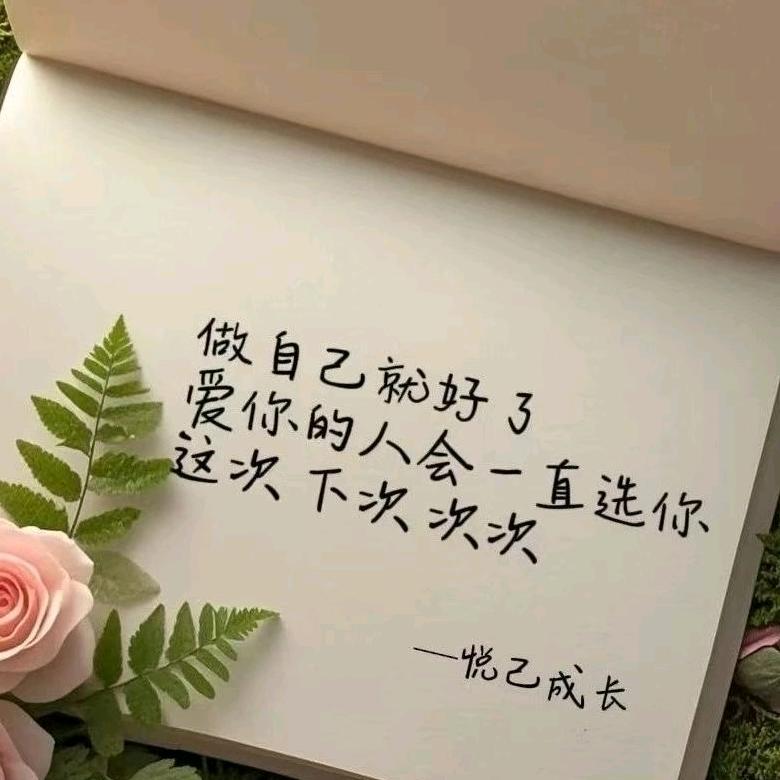 做自己就好了
爱你的人会一直选你
这次下次次次
—悦己成长